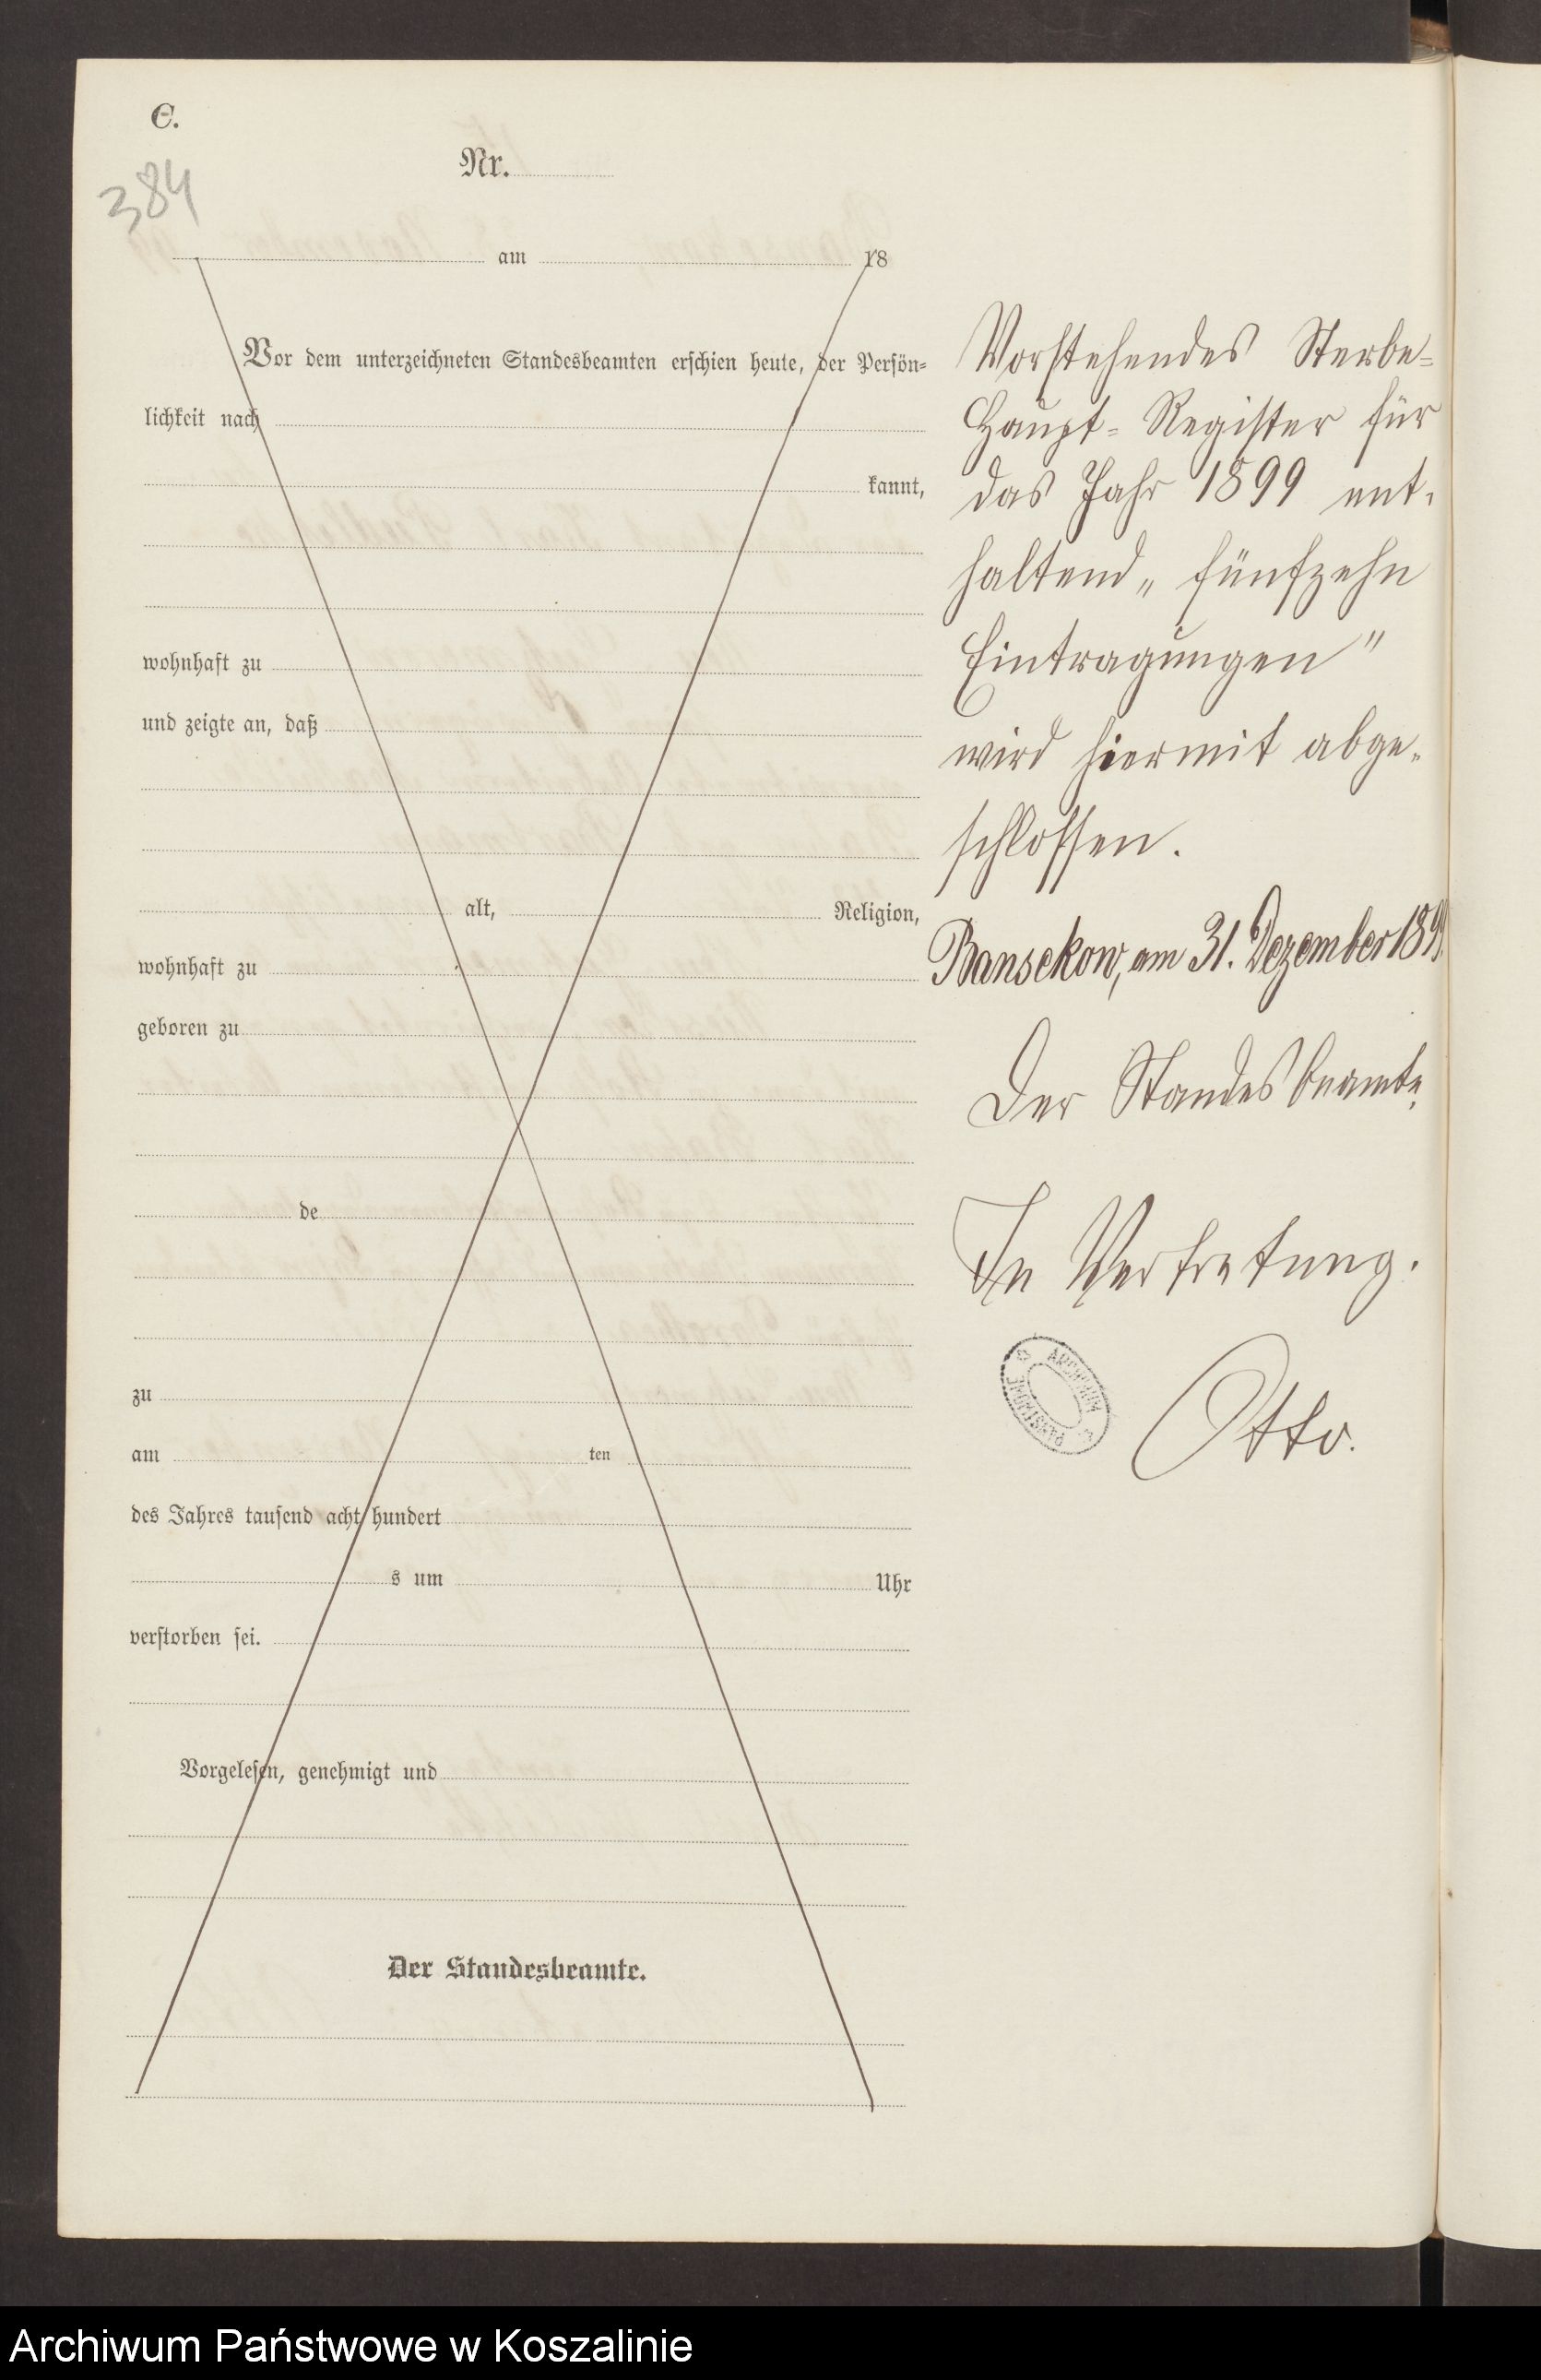 C.
384
Nr.
am 18
Vor dem unterzeichneten Standesbeamten erschien heute, der Persön=
lichkeit nach
kannt,
wohnhaft zu
und zeigte an, daß
alt, Religion,
wohnhaft zu
geboren zu
de
zu
am ten
des Jahres tausend acht hundert
s um Uhr
verstorben sei.
Vorgelesen, genehmigt und
Der Standesbeamte.
Vorstehendes Sterbe-
Haupt-Register für
das Jahr 1899 ent-
haltend „ fünfzehn
Eintragungen "
wird hiermit abge-
schlossen.
Bansekow, am 31. Dezember 1899.
Der Standesbeamte,
In Vertretung.
ARCHIWUM PAŃSTWOWE
Otto.
Archiwum Państwowe w Koszalinie